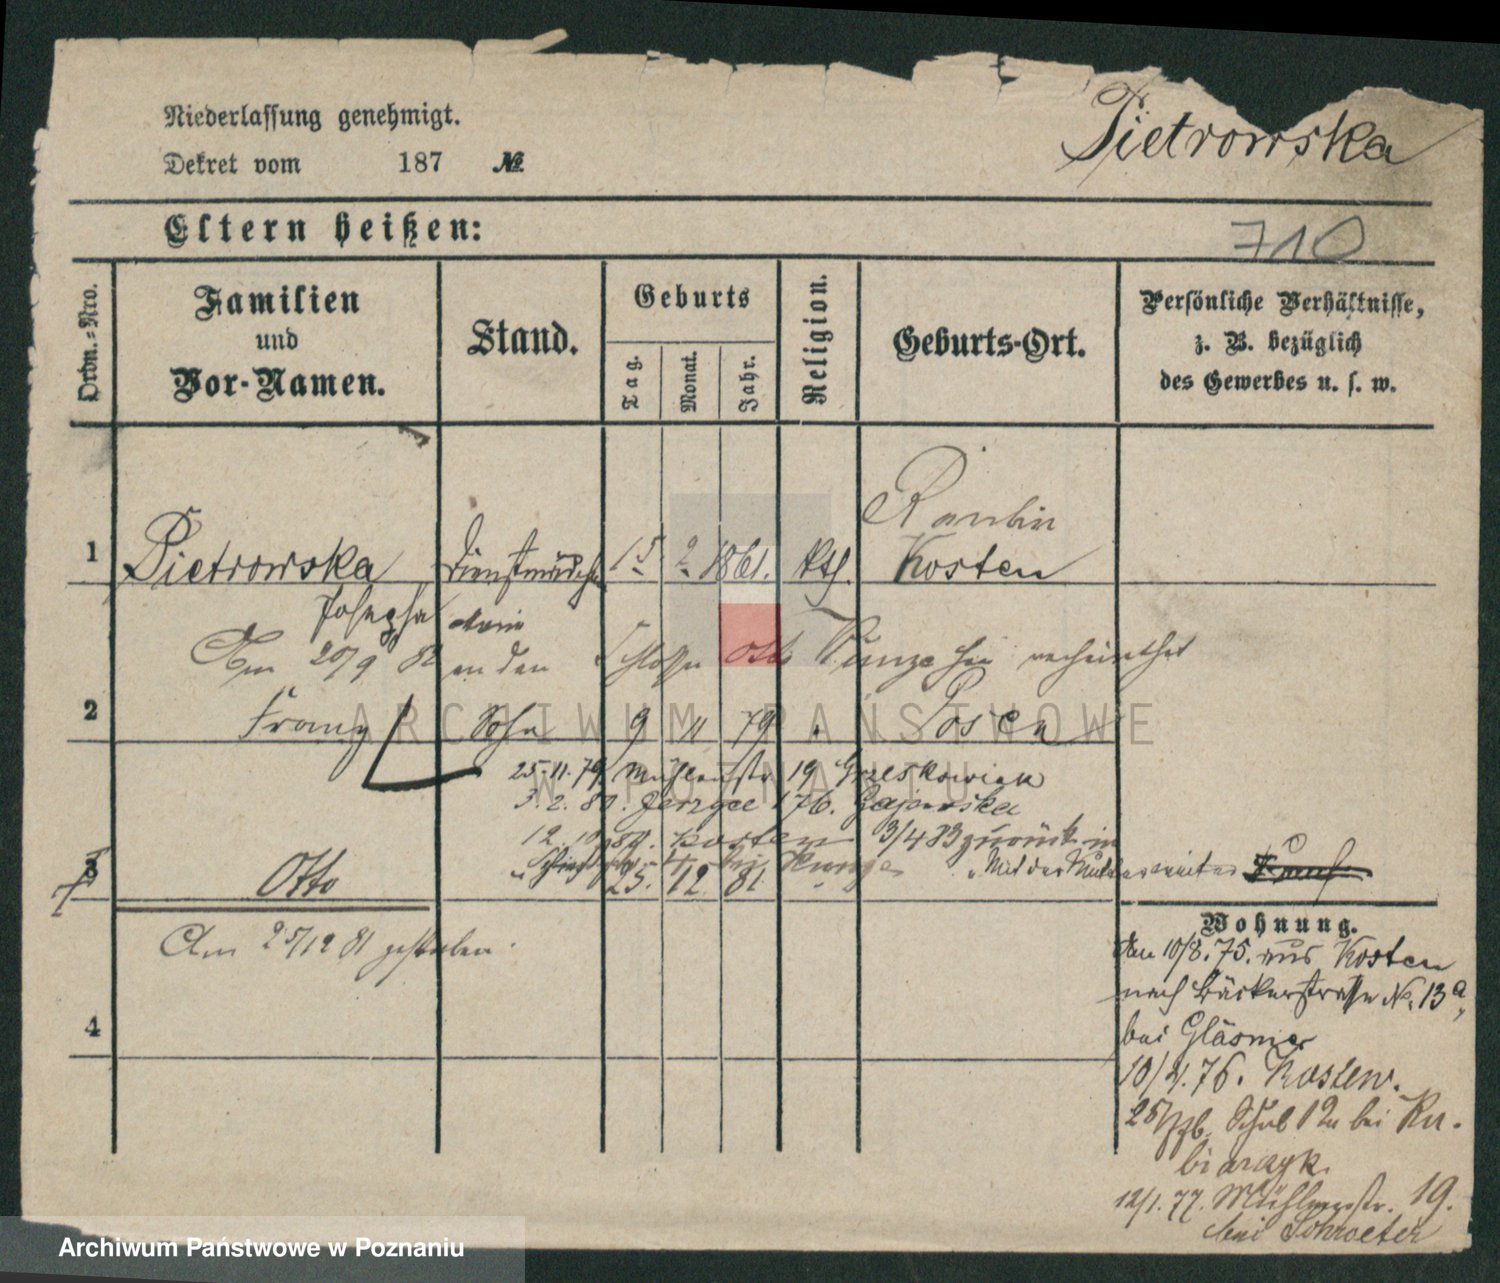 Niederlassung genehmigt.
Dekret vom 187 №
Pietrowska
Eltern heißen:
710
Ordn.=Nro.
Familien
und
Vor-Namen.
Stand.
Geburts
Tag.
Monat.
Jahr.
Religion.
Geburts-Ort.
Persönliche Verhältnisse,
z. B. bezüglich
des Gewerbes u. s. w.
1 Pietrowska Dienstmädchen 15 2 1861. kth. Kosten
Josepha
Am 20/9 82 an den Schlosser Otto verheirathet
2 Franz Sohn 9 11 79 Posen
25.11.79 Mühlenstr 19 Grzeskowiak
3.2.80. 176. Gajewska
12.10.80. Kosten 3/4 83 zurück in
3 Otto 25. 12 81
Am 25/12 81 gestorben.
Wohnung.
Am 10/8.75. aus Kosten
nach Bäckerstrasse № 13a,
bei Gläsmer
4
10/4.76. Kosten.
bei
12/1.77. Mühlenstr. 19.
bei Schroeter
ARCHIWUM PAŃSTWOWE
W POZNANIU
Archiwum Państwowe w Poznaniu